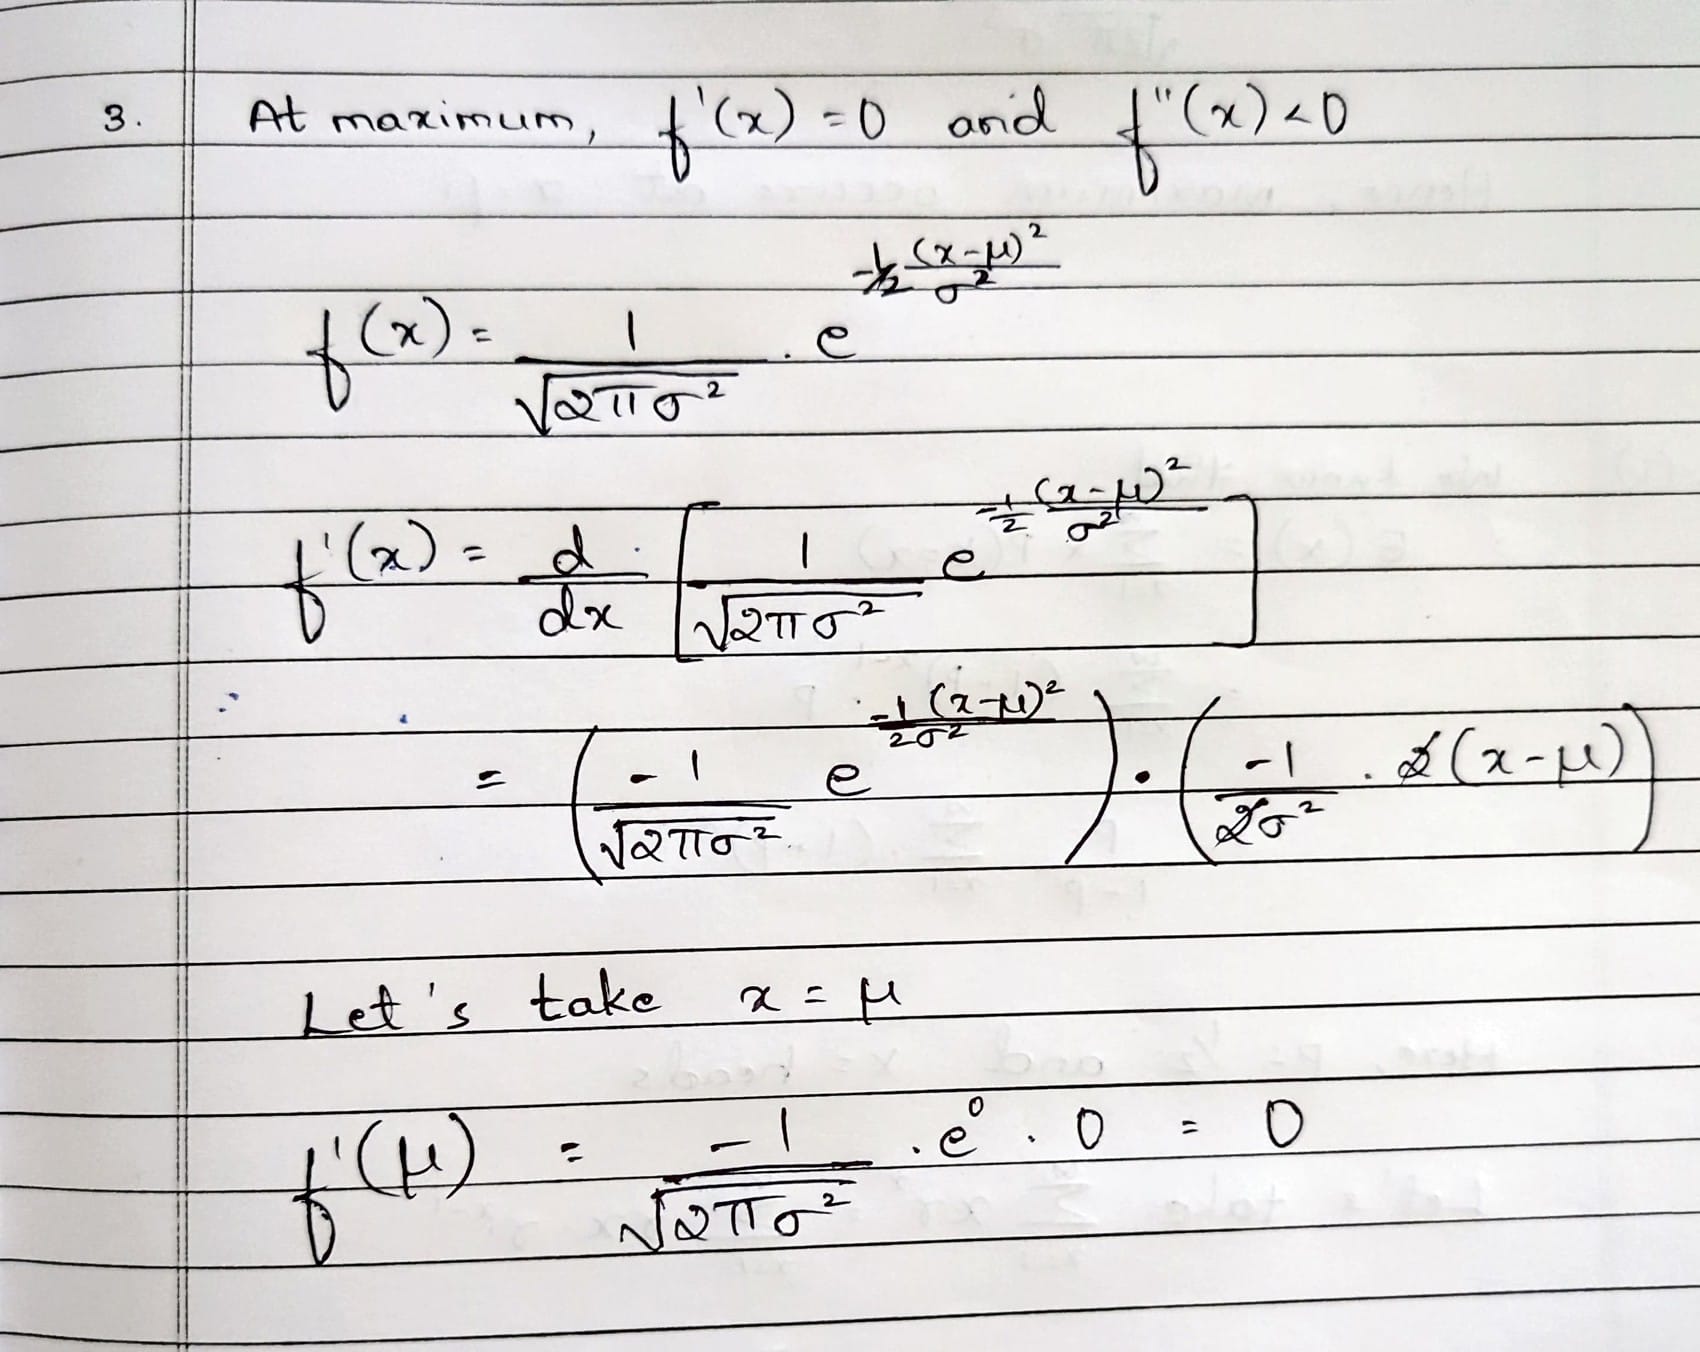 3. At maximum, f'(x) = 0 and f''(x) < 0
f(x) = 1/√(2πσ²) · e^(-1/2 (x-μ)²/σ²)
f'(x) = d/dx [1/√(2πσ²) e^(-1/2 (x-μ)²/σ²)]
= (-1/√(2πσ²) e^(-1/2σ² (x-μ)²)) · (-1/2σ² · 2(x-μ))
Let's take x = μ
f'(μ) = -1/√(2πσ²) · e⁰ · 0 = 0